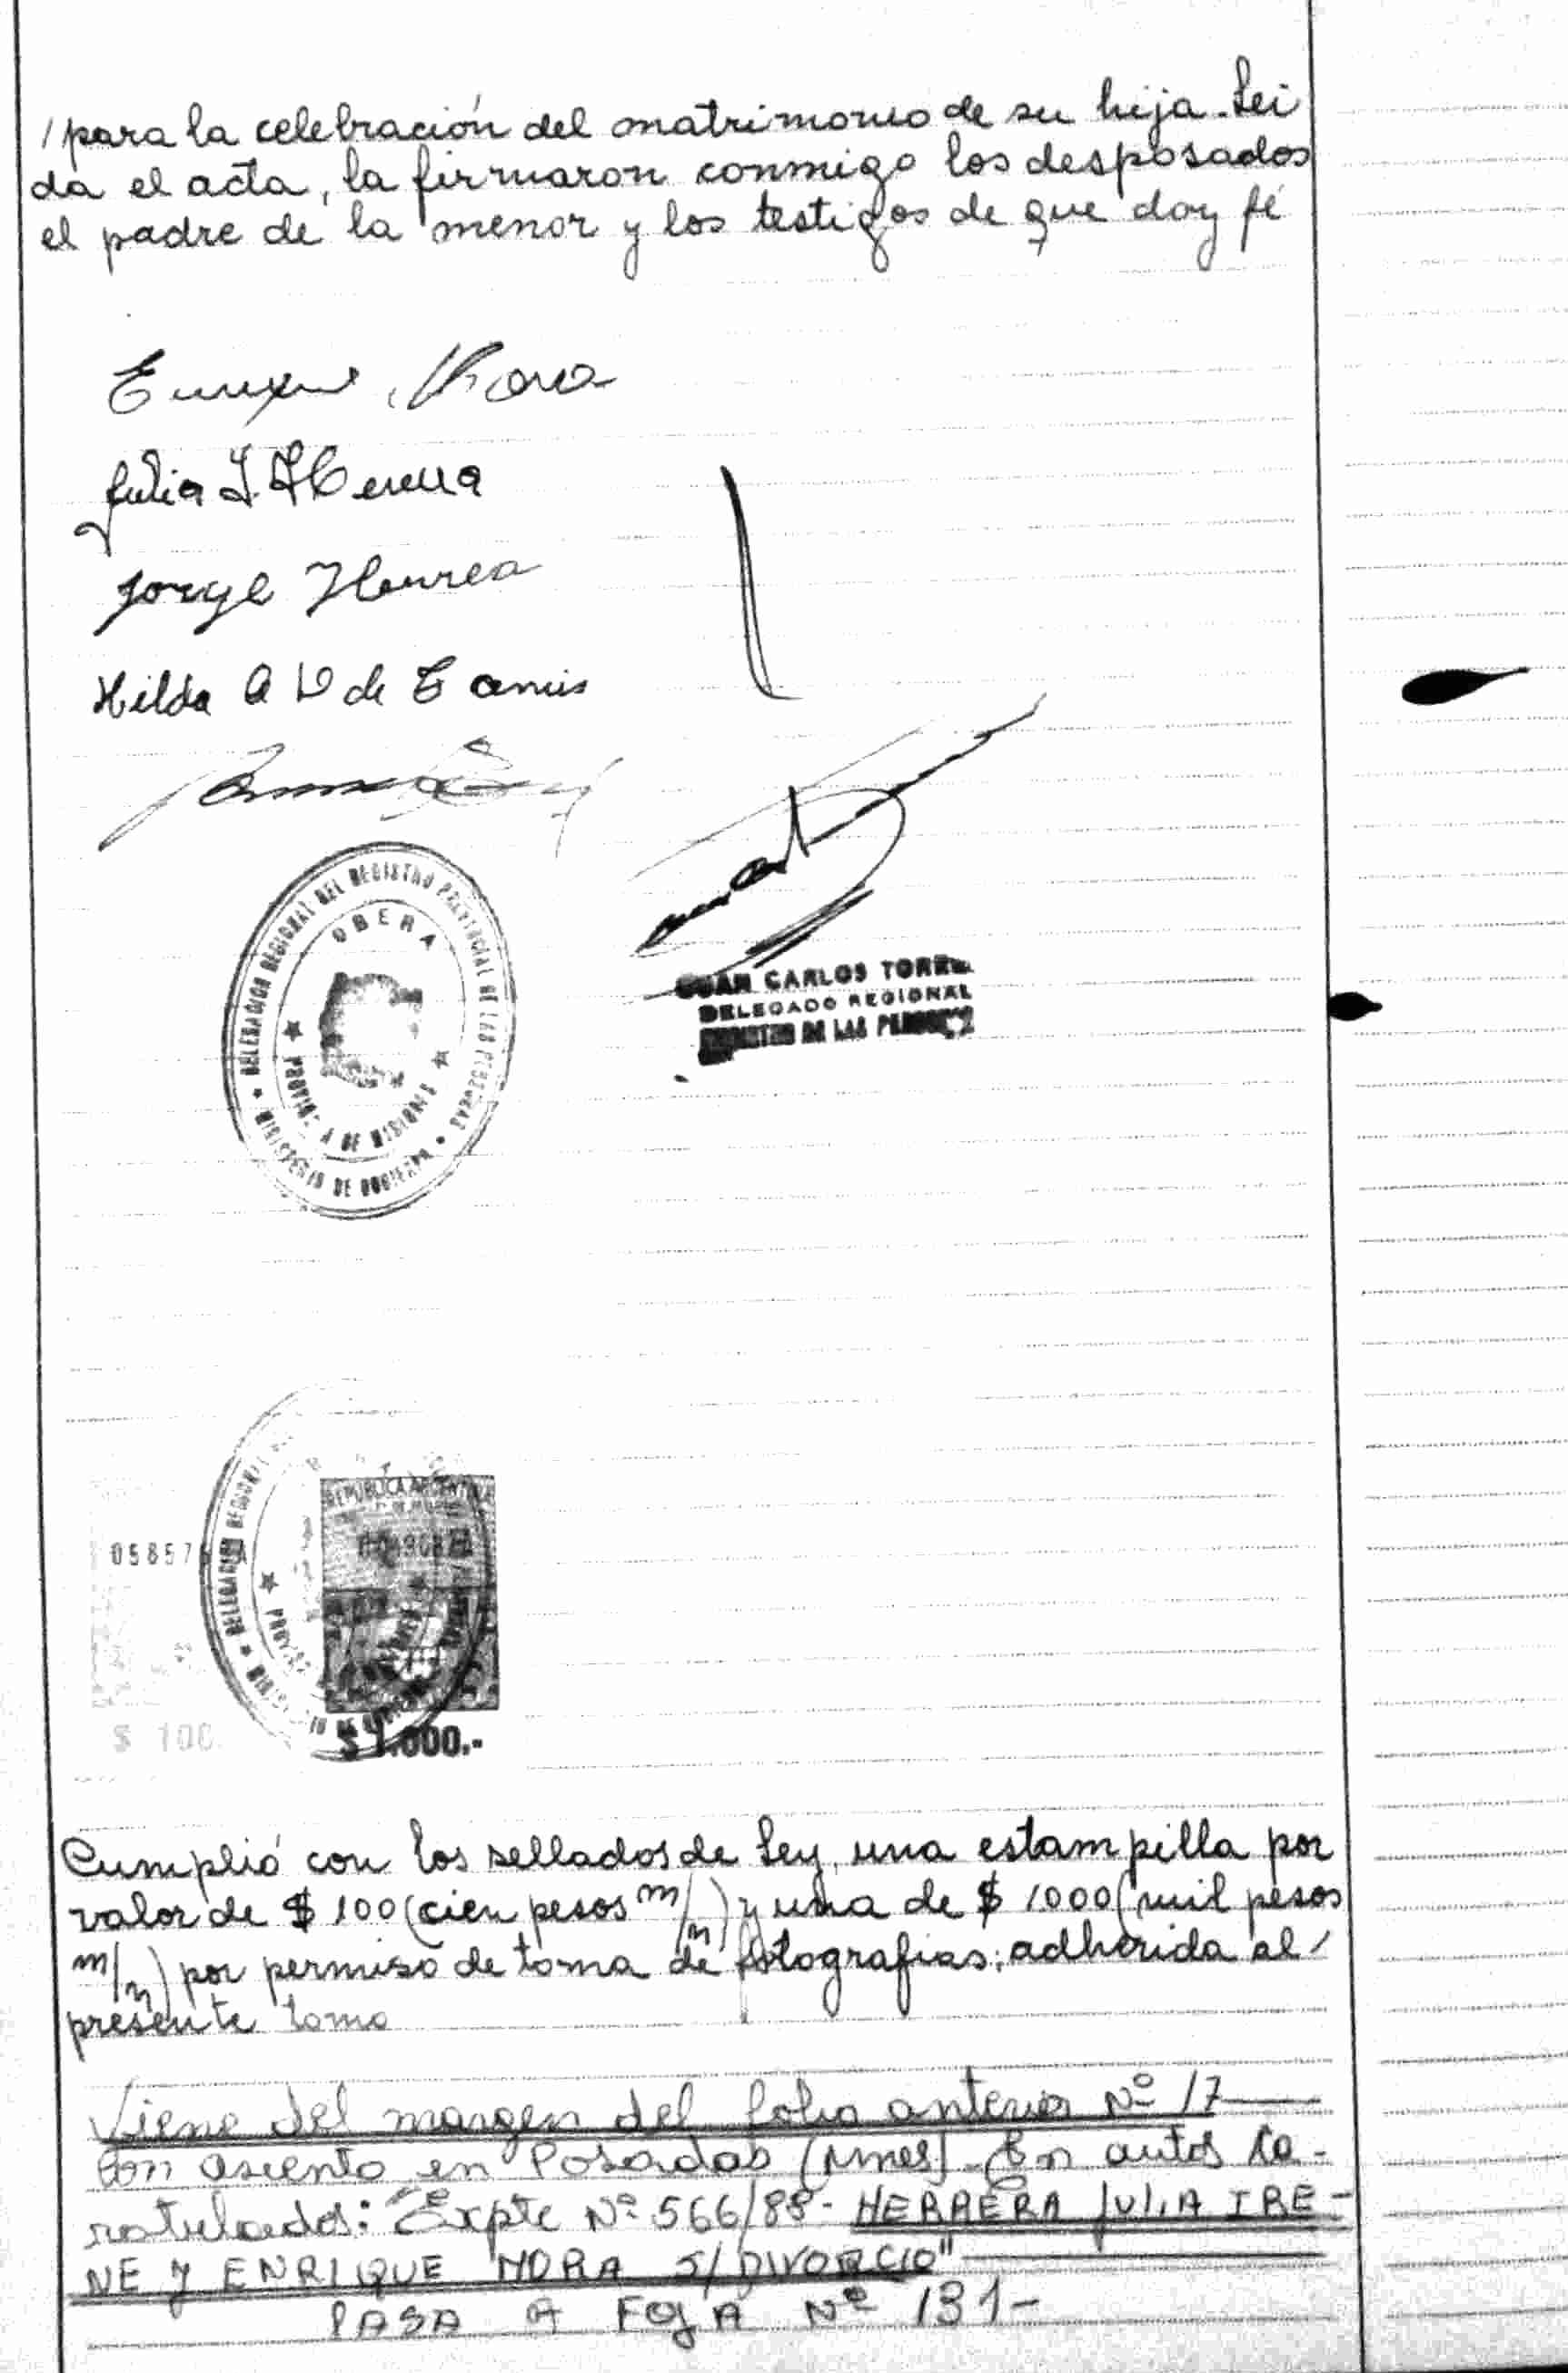 / para la celebración del matrimonio de su hija. Lei
da el acta, la firmaron conmigo los desposados
el padre de la menor y los testigos de que doy fé
Enrique Mora
Julia I. Herrera
Jorge Herrera
Hilda A V de
DELEGACION REGIONAL DEL REGISTRO PROVINCIAL DE LAS PERSONAS
OBERA
PROVINCIA DE MISIONES
MINISTERIO DE GOBIERNO
JUAN CARLOS TORRES
DELEGADO REGIONAL
REGISTRO DE LAS PERSONAS
REPUBLICA ARGENTINA
DELEGACION REGIONAL
$ 100
$ 1.000.-
Cumplió con los sellados de Ley, una estampilla por
valor de $ 100 (cien pesos m/n) y una de $ 1000 (mil pesos
m/n) por permiso de toma de fotografias; adherida al /
presente tomo
Viene del margen del folio anterior Nº 17
con asiento en Posadas (Mnes). En autos ca-
ratulados: "Expte Nº 566/88 - HERRERA JULIA IRE-
NE Y ENRIQUE MORA S/ DIVORCIO"
PASA A FOJA Nº 131-